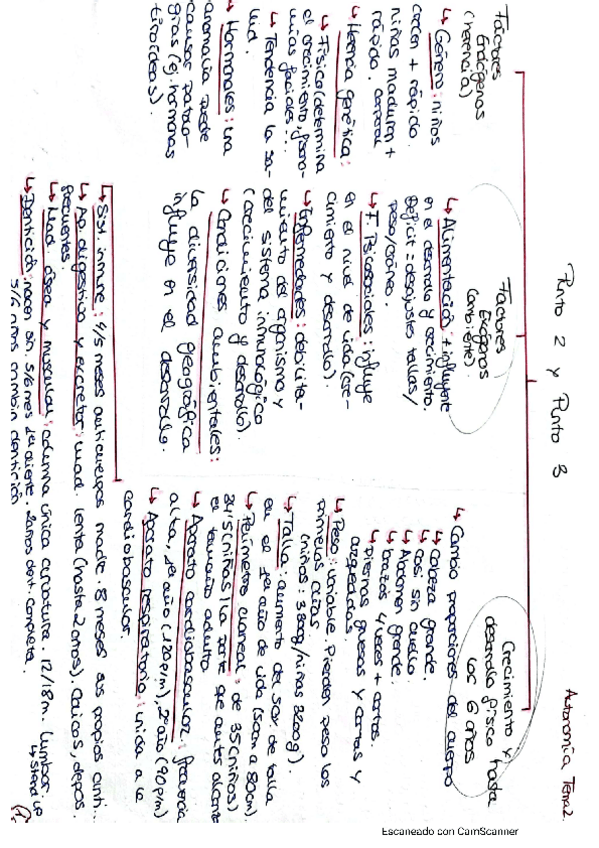 Autonomía Tema 2.
Punto 2 y Punto 3
Factores
Endógenos
(herencia)
↳ Género: niños
crecen + rápido.
niñas maduran +
rápido.
↳ Herencia genética:
↳ Físico (determina
el crecimiento,
faciales...
↳ Tendencia la sa-
lud.
↳ Hormonales: una
anomalía puede
causar patolo-
gías (ej. hormonas
tiroideas).
Factores
Exógenos
(ambiente)
↳ Alimentación: + influyente
en el desarrollo y crecimiento.
Déficit = desajustes tallas/
peso/cráneo.
↳ F. Psicosociales: influye
en el nivel de vida (cre-
cimiento y desarrollo).
↳ Enfermedades: debilita-
miento del organismo y
del sistema inmunológico
(crecimiento y desarrollo).
↳ Condiciones ambientales:
la diversidad geográfica
influye en el desarrollo.
Crecimiento y
desarrollo físico hasta
los 6 años
↳ Cambio proporciones del cuerpo
↳ Cabeza grande.
↳ casi sin cuello
↳ Abdomen grande.
↳ brazos + cortos.
↳ Piernas gruesas y cortas y
arqueadas.
↳ Peso: variable. Pierden peso los
primeros días.
(niños: /niñas 3200g).
↳ Talla: aumento del 50% de talla
en el 1er año de vida (50cm a 80cm).
↳ Perímetro craneal: de 35 (niños)
34'5 (niñas) la parte que antes alcanza
el tamaño adulto
↳ Aparato cardiobascular: frecuencia
alta, 1er año (120p/m), 2º año (90p/m)
↳ Aparato respiratorio: unida a la
cardiobascular.
↳ Sist. inmune: 4/5 meses anticuerpos madre. 8 meses sus propios anti...
↳ Ap. digestivo y excretor: mad. lenta (hasta 2 años). Cólicos, depos.
frecuentes.
↳ Mad. ósea y muscular: columna única curvatura. 12/18m. lumbar.
↳ stand up
↳ Dentición: nacen sin. 5/6 mes 1er diente. 2 años dent. completa.
5/6 años cambian dentición
(1)
Escaneado con CamScanner